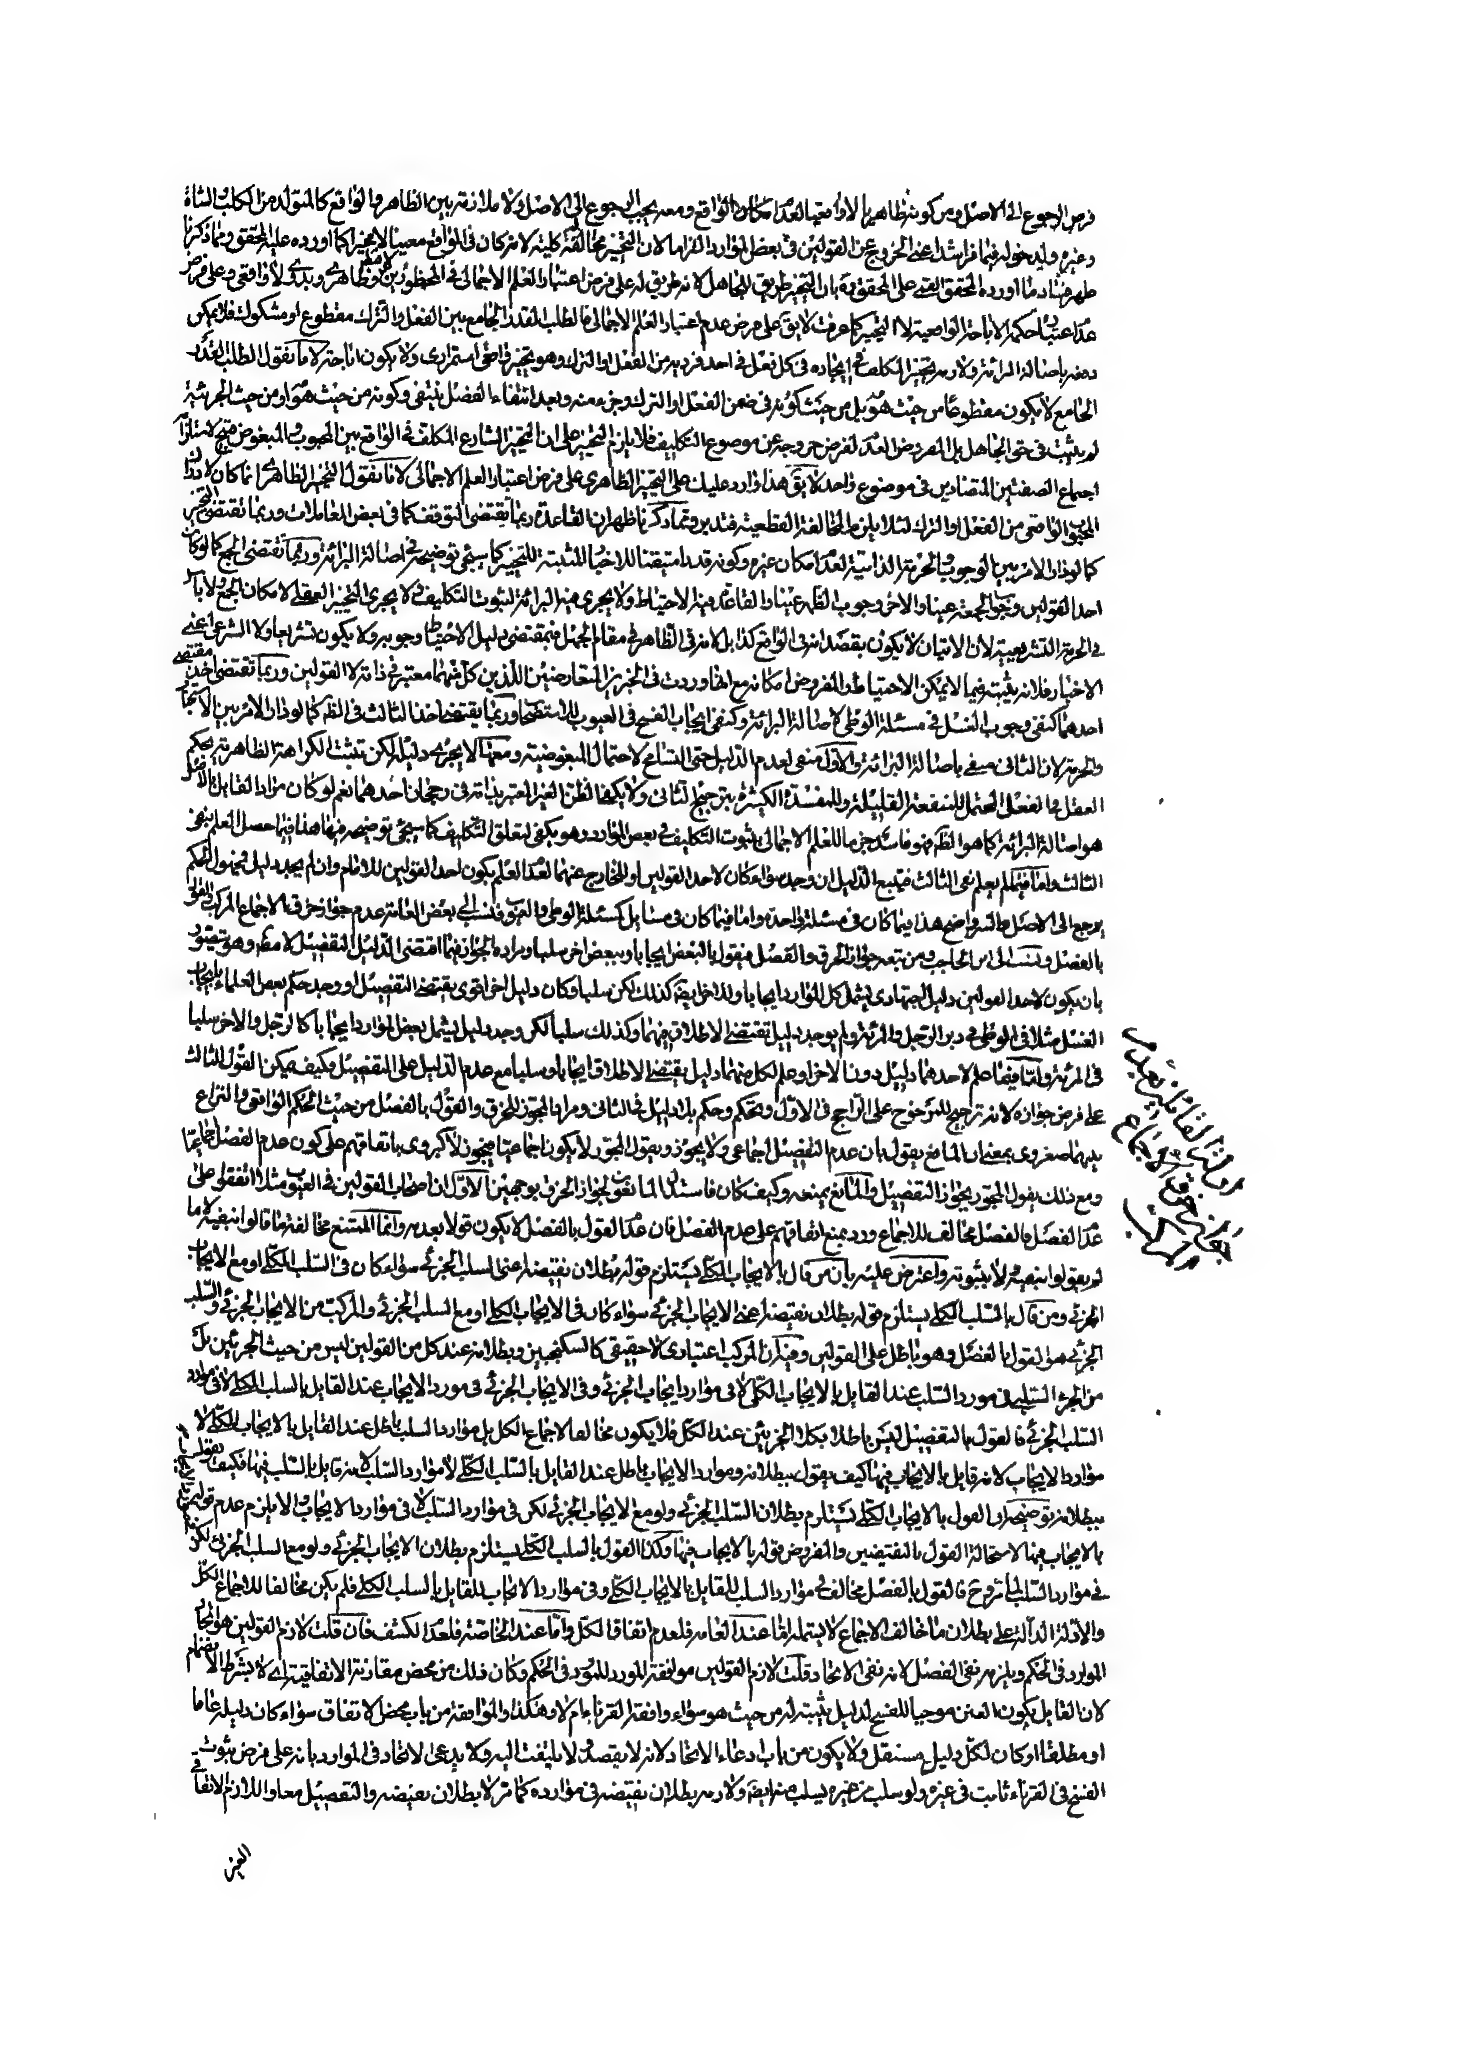 فرض الرجوع الى الاصل ومن كونه ظاهريا لا واقعيا لعدم امكان الواقع ومعه يجب الرجوع الى الاصل ولا ملازمة بين الظاهر والواقع كالمتولد من الكلب والشاة
وغيره وليدخوله فيما فرا شك اعنى الخروج عن القولين فى بعض الموارد التزاما لان التخيير مخالفة كلية لانه كان فى الواقع معينا لا تخييرا كما اورده عليه المحقق ومما ذكرنا
ظهر فساد ما اورده المحقق القمى على المحقق ره بان التخيير طريق للجاهل لانه طريق له على فرض اعتبار العلم الاجمالى فى المحظورين وظاهرى وبدوى لا واقعى وعلى فرض
عدم اعتباره حكمه الاباحة الواقعية لا التخيير كما عرفت لا يق على فرض عدم اعتبار العلم الاجمالى فالطلب القدر الجامع بين الفعل والترك مقطوع او مشكوك فلا يمكن
دفعه باصالة البرائة ولازمه تخيير المكلف فى ايجاده فى كل فعل فى احد فرديه من الفعل او الترك وهو تخيير واقعى استمرارى ولا يكون اباحة لانا نقول الطلب بقدر
الجامع لا يكون مقطوعا من حيث هو بل من حيث كونه فى ضمن الفعل او الترك وجزء منه وبعد انتفاء الفصل ينتفى وكونه من حيث هو او من حيث الجزئية
لم يثبت فى حق الجاهل بل المفروض العدم لفرض خروجه عن موضوع التكليف فلا يلزم التخيير على ان التخيير الشارع المكلف فى الواقع بين المحبوب والمبغوض قبيح لاستلزامه
اجتماع الصفتين المتضادين فى موضوع واحد لا يق هذا وارد عليك على التخيير الظاهرى على فرض اعتبار العلم الاجمالى لانا نقول التخيير الظاهرى انما كان لادراك
المحبوب الواقعى من الفعل او الترك لئلا يلزم المخالفة القطعية فتدبر ومما ذكرنا ظهر ان القاعدة ربما تقتضى التوقف كما فى بعض المعاملات وربما تقتضى التخيير
كما لو دار الامر بين الوجوب والحرمة الذاتية لعدم امكان غيره وكونه قدرا متيقنا للاخبار المثبتة للتخيير كما سيجئ توضيحه فى اصالة البرائة وربما تقتضى الجمع كما لو كان
احد القولين وجوب الجمعة عينا والاخر وجوب الظهر عينا والقاعدة فيه الاحتياط ولا يجرى فيه البرائة لثبوت التكليف ولا يجرى التخيير العقلى لامكان الجمع ولا باس
فى الحرمة التشريعية لان الاتيان لا يكون بقصد انه فى الواقع كذا بل لانه فى الظاهر فى مقام الجهل فبمقتضى دليل الاحتياط وجوبه ولا يكون تشريعا ولا الشرعى اعنى
الاخبار فلانه يثبته فيما لا يمكن الاحتياط والمفروض امكانه مع انها وردت فى الخبرين المتعارضين اللذين كل منهما معتبر فى ذاته لا القولين وربما تقتضى اخذ مقتضى
احدهما كنفى وجوب الغسل فى مسئلة الوطى لاصالة البرائة وكنفى ايجاب الفسخ فى العيوب للاستصحاب وربما يقتضى اخذ الثالث فى النظر كما لو دار الامر بين الايجاب
والحرمة لان الثانى منفى باصالة البرائة والاول منفى لعدم الدليل حتى التسامح لاحتمال المبغوضية ومعها لا يجرى دليله لكن تثبت الكراهة الظاهرية بحكم
هو اصالة البرائة كما هو الظ فهو فاسد جزما للعلم الاجمالى بثبوت التكليف فى بعض الموارد وهو يكفى لتعلق التكليف كما سيجئ توضيحه فيها هذا فيما حصل العلم بنفى
الثالث واما فيما لم يعلم نفى الثالث فيتبع الدليل ان وجد سواء كان لاحد القولين او للخارج عنهما لعدم العلم بكون احد القولين للامام وان لم يجد دليل فى
يرجع الى الاصل والسر واضح هذا فيما كان فى مسئلة واحدة واما فيما كان فى مسايل كمسئلة الوطى والعيوب فنسب الى بعض العامة عدم جواز خرق الاجماع المركب والقول
بالفصل ونسب الى ابن الحاجب ومن تبعه جواز الخرق والفصل فيقول بالبعض ايجابا وببعض اخر سلبا ومراده الجواز فيما اقتضى الدليل التفصيل لا مطلقا وهو يتصور
بان يكون لاحد القولين دليل اجتهادى يشمل كل الموارد ايجابا والاخر ايضا كذلك لكن سلبا وكان دليل اخر اقوى يقتضى التفصيل او وجد حكم بعض العلماء بايجاب
الغسل مثلا فى الوطى فى دبر الرجل والمرئة ولم يوجد دليل تقتضى الاطلاق فيهما وكذلك سلبا لكن وجد دليل يشمل بعض الموارد ايجابا كالرجل والاخر سلبا
فى المرئة واما فيما علم لاحدهما دليل دون الاخر او علم لكل منهما دليل يقتضى الاطلاق ايجابا وسلبا مع عدم الدليل على التفصيل فكيف يمكن القول بالثالث
على فرض جوازه لانه ترجيح للمرجوح على الراجح فى الاول وتحكم وحكم بلا دليل فى الثانى ومراد المجوز الخرق والقول بالفصل من حيث الحكم الواقعى والنزاع
بينهما صغروى بمعنى ان المانع يقول بان عدم التفصيل اجماعى ولا يجوز ويقول المجوز لا يكون اجماعيا فيجوز لا كبروى باتفاقهم على كون عدم الفصل اجماعيا
ومع ذلك يقول المجوز بجواز التفصيل والمانع يمنعه وكيف كان فاستدل المانعون لجواز الخرق بوجهين الاول ان اصحاب القولين فى العيوب مثلا اتفقوا على
عدم الفصل فالفصل مخالف للاجماع ورد بمنع اتفاقهم على عدم الفصل فان عدم القول بالفصل لا يكون قولا بعدمه وانما الممتنع مخالفة ما قالوا بنفيه لا ما
لم يقولوا بنفيه ولا بثبوته واعترض عليه بان من قال بالايجاب الكلى يستلزم قوله بطلان نقيضه اعنى السلب الجزئى سواء كان فى السلب الكلى او مع الايجاب
الجزئى ومن قال بالسلب الكلى يستلزم قوله بطلان نقيضه اعنى الايجاب الجزئى سواء كان فى الايجاب الكلى او مع السلب الجزئى والمركب من الايجاب الجزئى والسلب
الجزئى هو القول بالفصل وهو باطل على القولين وفيه ان المركب اعتبارى لا حقيقى كالسكنجبين وبطلانه عند كل من القولين ليس من حيث الجزئين بل
من الجزء السلبى فى مورد السلب عند القايل بالايجاب الكلى لا فى موارد ايجاب الجزئى وفى الايجاب الجزئى فى مورد الايجاب عند القايل بالسلب الكلى لا فى موارد
السلب الجزئى فالقول بالتفصيل ليس باطلا بكلا الجزئين عند الكل فلا يكون مخالفا لاجماع الكل بل موارد السلب باطل عند القايل بالايجاب الكلى لا
موارد الايجاب لانه قايل بالايجاب فيها كيف يقول ببطلانه وموارد الايجاب باطل عند القايل بالسلب الكلى لا موارد السلب لانه قايل بالسلب فيها فكيف يقول
ببطلانه توضيحه ان القول بالايجاب الكلى يستلزم بطلان السلب الجزئى ولو مع الايجاب الجزئى لكن فى موارد السلب لا فى موارد الايجاب والا يلزم عدم قوله
بالايجاب فيها لاستحالة القول بالنقيضين والمفروض قوله بالايجاب فيها وكذا القول بالسلب الكلى يستلزم بطلان الايجاب الجزئى ولو مع السلب الجزئى لكن
فى موارد السلب لما مر وح فالقول بالفصل مخالف فى موارد السلب للقايل بالايجاب الكلى وفى موارد الايجاب للقايل بالسلب الكلى فلم يكن مخالفا للاجماع الكل
والادلة الدالة على بطلان ما خالف الاجماع لا يشمله اما عند العامة فلعدم اتفاق الكل واما عند الخاصة فلعدم الكشف فان قلت لازم القولين هو اتحاد
الموارد فى الحكم ويلزمه نفى الفصل لانه نفى الاتحاد قلت لازم القولين موافقة المورد للمورد فى الحكم وكان ذلك من محض مقارنة الاتفاقية اى لا بشرط الانضمام
لان القايل بكون العنن موجبا للفسخ لدليل يثبته له من حيث هو سواء وافقه القرناء ام لا وهكذا والموافقة من باب محض الاتفاق سواء كان دليله عاما
او مطلقا او كان لكل دليل مستقل ولا يكون من باب دعاء الاتحاد لانه لا يقصد ولا يلتفت اليه ولا يدعى الاتحاد فى الموارد بانه على فرض ثبوت
الفسخ فى القرناء ثابت فى غيره ولو سلب من غيره يسلب منه ايضا ولازمه بطلان نقيضه فى موارده كما مر لا بطلان نقيضه والتفصيل معا واللازم الاتفاقى